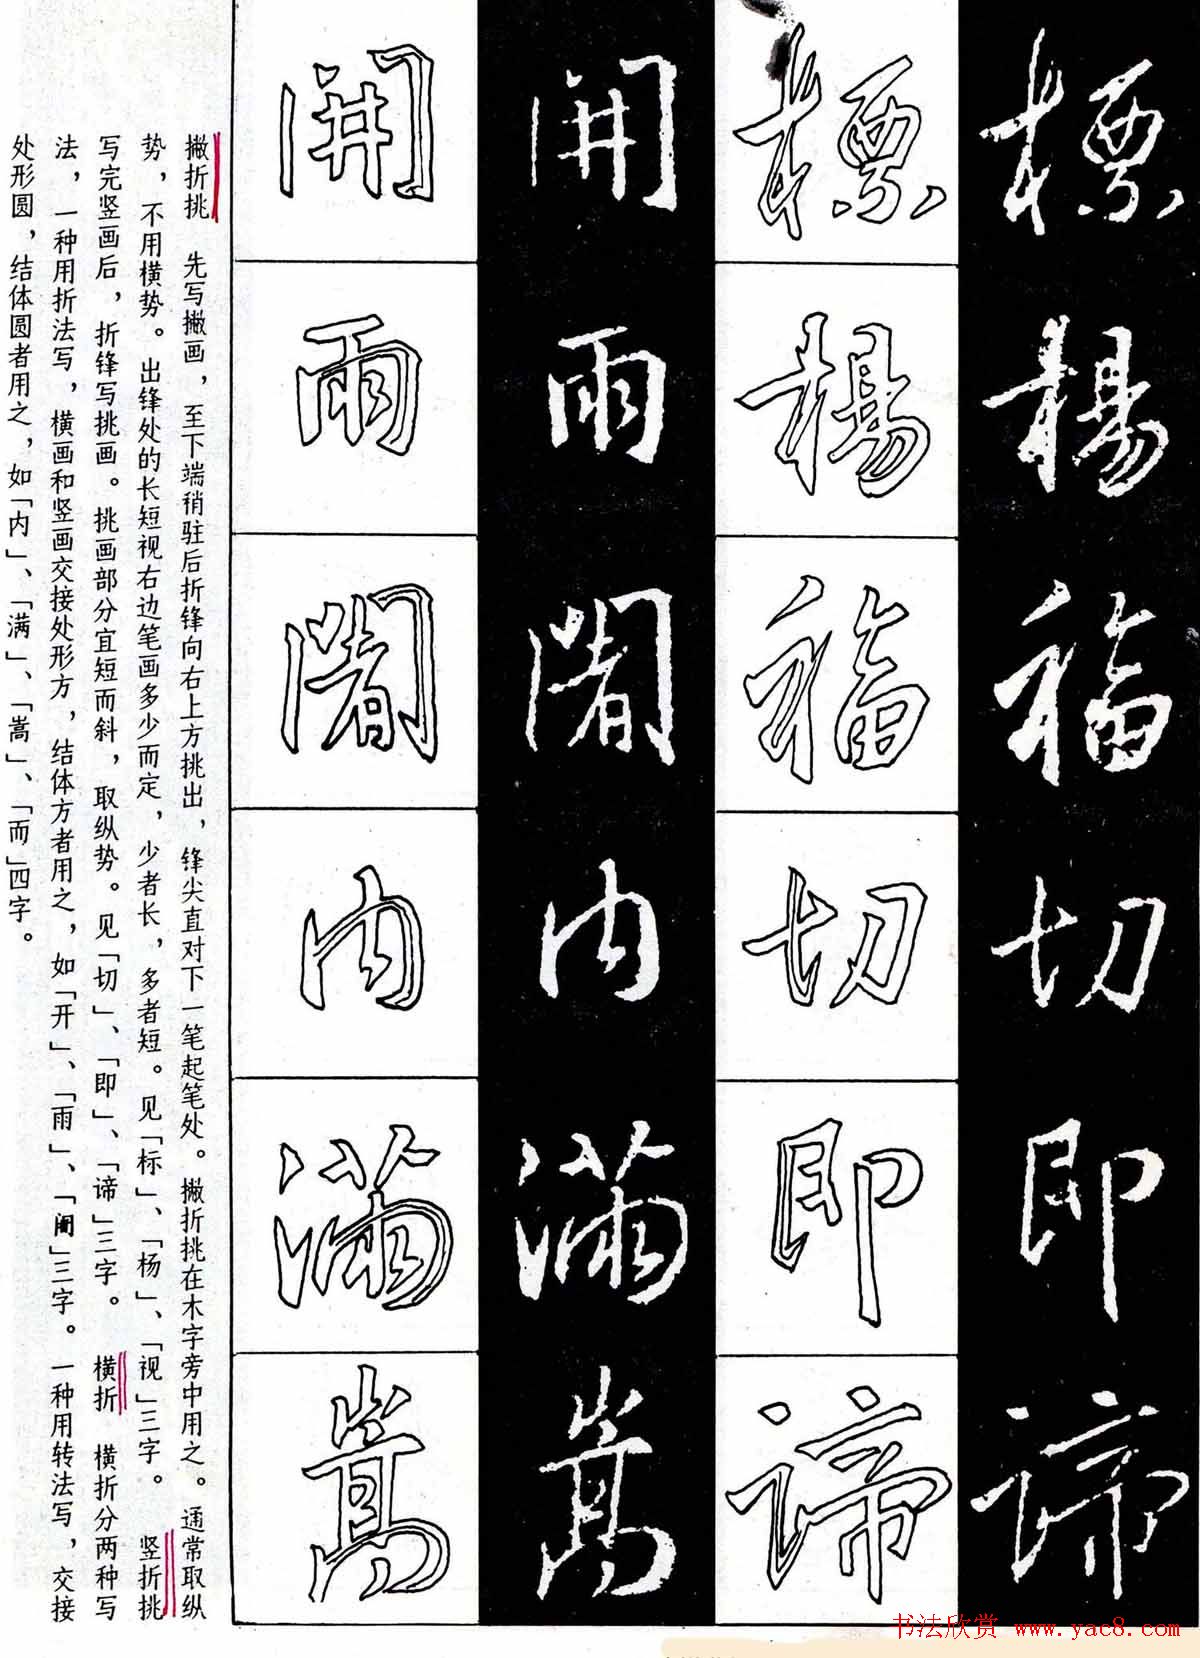 標
楊
福
切
即
諦
開
雨
闍
内
满
嵩
撇折挑　先写撇画，至下端稍驻后折锋向右上方挑出，锋尖直对下一笔起笔处。撇折挑在木字旁中用之。通常取纵
势，不用横势。出锋处的长短视右边笔画多少而定，少者长，多者短。见「标」、「杨」、「视」三字。　竖折挑
写完竖画后，折锋写挑画。挑画部分宜短而斜，取纵势。见「切」、「即」、「谛」三字。　横折　横折分两种写
法，一种用折法写，横画和竖画交接处形方，结体方者用之，如「开」、「雨」、「阇」三字。一种用转法写，交接
处形圆，结体圆者用之，如「内」、「满」、「嵩」、「而」四字。
书法欣赏 www.yac8.com